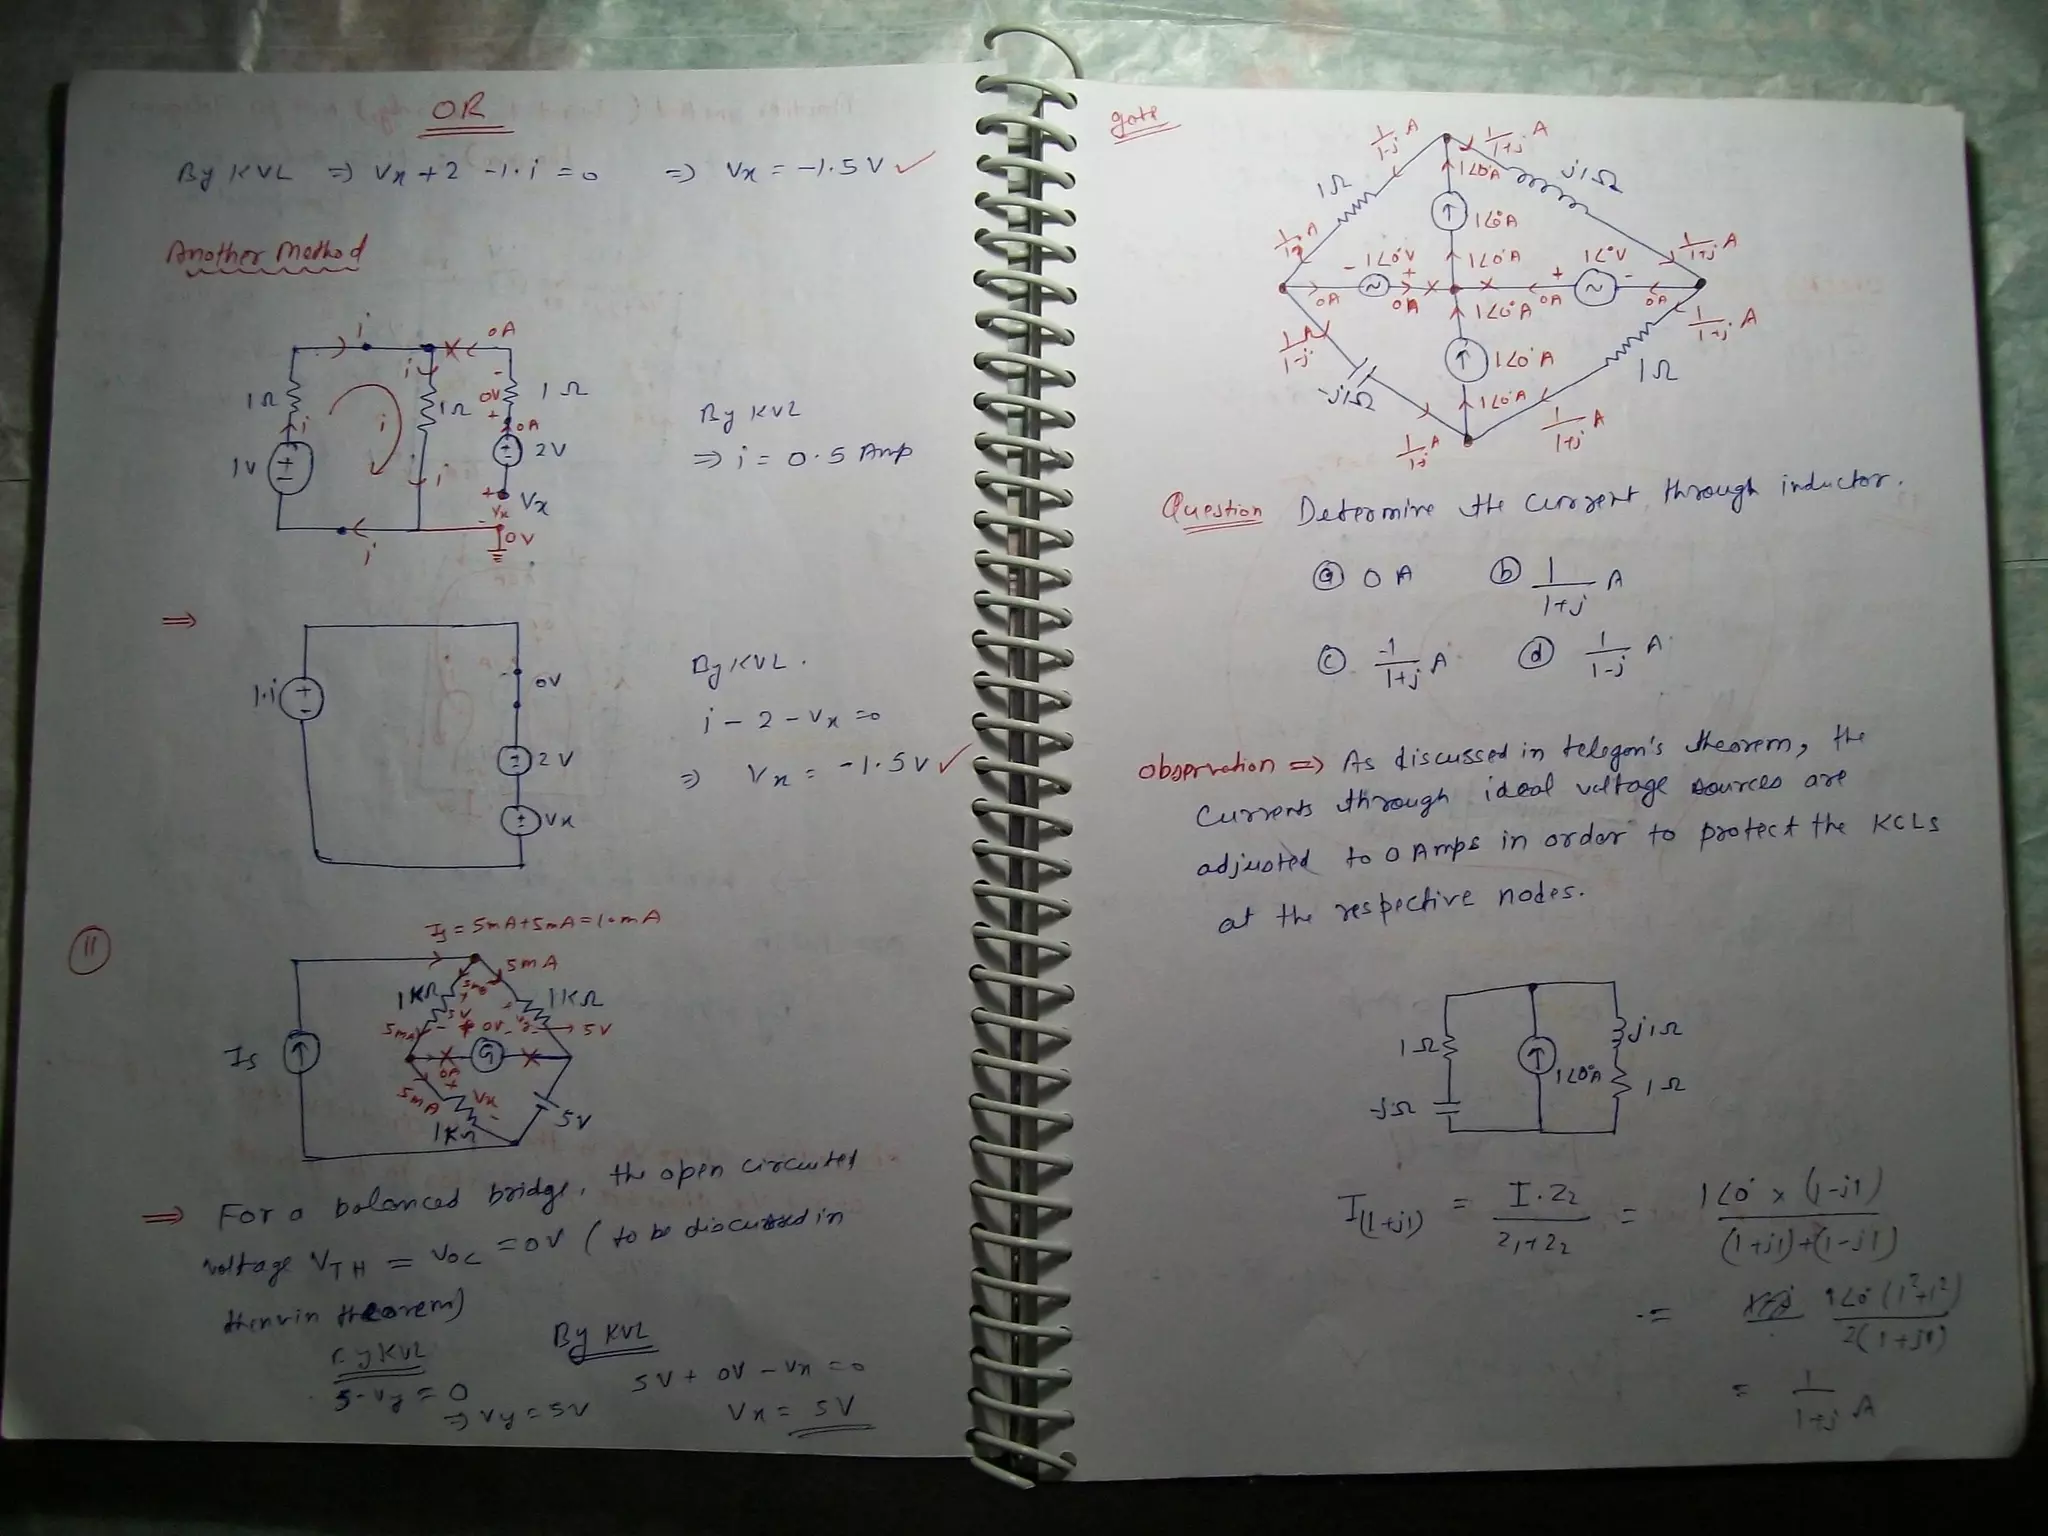 OR
By KVL ⇒ Vx + 2 - 1·i = 0 ⇒ Vx = -1.5 V ✓
Another Method
i
0A
1Ω
i
0V
1Ω
1Ω
i
i
0A
1V
2V
i
Vx
Vx
0V
i
By KVL
⇒ i = 0.5 Amp
⇒
1·i
0V
2V
Vx
By KVL.
i - 2 - Vx = 0
⇒ Vx = -1.5 V ✓
11
Is = 5mA+5mA = 10mA
5mA
1KΩ
5mA
1KΩ
5V
5mA
0V
Vy
5V
Is
G
0A
5mA
Vx
1KΩ
5V
⇒ For a balanced bridge, the open circuited
voltage VTH = VOC = 0V (to be discussed in
thenvin theorem)
By KVL
5 - Vy = 0
⇒ Vy = 5V
By KVL
5V + 0V - Vx = 0
Vx = 5V
gate
1/(1-j) A
1/(1+j) A
1∠0°A
1Ω
j1Ω
1∠0°A
1/(1+j) A
- 1∠0°V +
1∠0°A
+ 1∠0°V -
0A
0A
0A
0A
1∠0°A
1/(1-j) A
1/(1+j) A
1∠0°A
1Ω
-j1Ω
1∠0°A
1/(1-j) A
1/(1+j) A
Question Determine the current through inductor.
(a) 0 A (b) 1/(1+j) A
(c) -1/(1+j) A (d) 1/(1-j) A
observation ⇒ As discussed in telegon's theorem, the
currents through ideal voltage sources are
adjusted to 0 Amps in order to protect the KCLs
at the respective nodes.
1Ω
j1Ω
1∠0°A
1Ω
-jΩ
I(1+j1) = I·Z2/(Z1+Z2) = 1∠0° × (1-j1)/((1+j1)+(1-j1))
= 1∠0°(1²+1²)/(2(1+j1))
= 1/(1+j) A